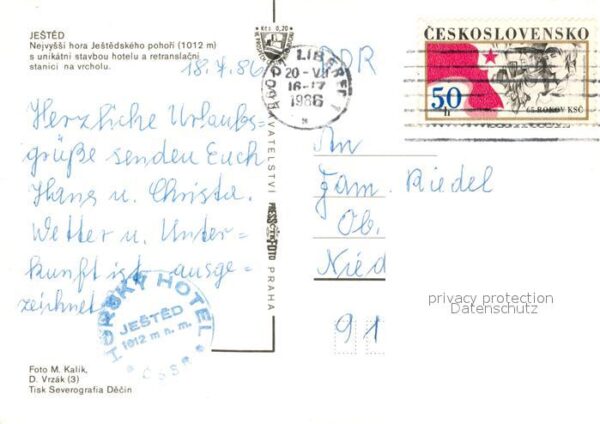 JEŠTĚD
Nejvyšší hora Ještědského pohoří (1012 m)
s unikátní stavbou hotelu a retranslační
stanici na vrcholu.
18.7.86
Herzliche Urlaubs-
grüße senden Euch
Hans u. Christa.
Wetter u. Unter-
kunft ist ausge-
zeichnet
HORSKÝ HOTEL
JEŠTĚD
1012 m n. m.
ČSSR
Foto M. Kalik,
D. Vrzák (3)
Tisk Severografia Děčín
Kčs 0,20
VYDAVATELSTVÍ PRESSFOTO PRAHA
LIBEREC
20-VII
16-17
1986
DDR
ČESKOSLOVENSKO
50 h
65 ROKOV KSČ
An
Fam. Riedel
Ob.
Nied
91
privacy protection
Datenschutz